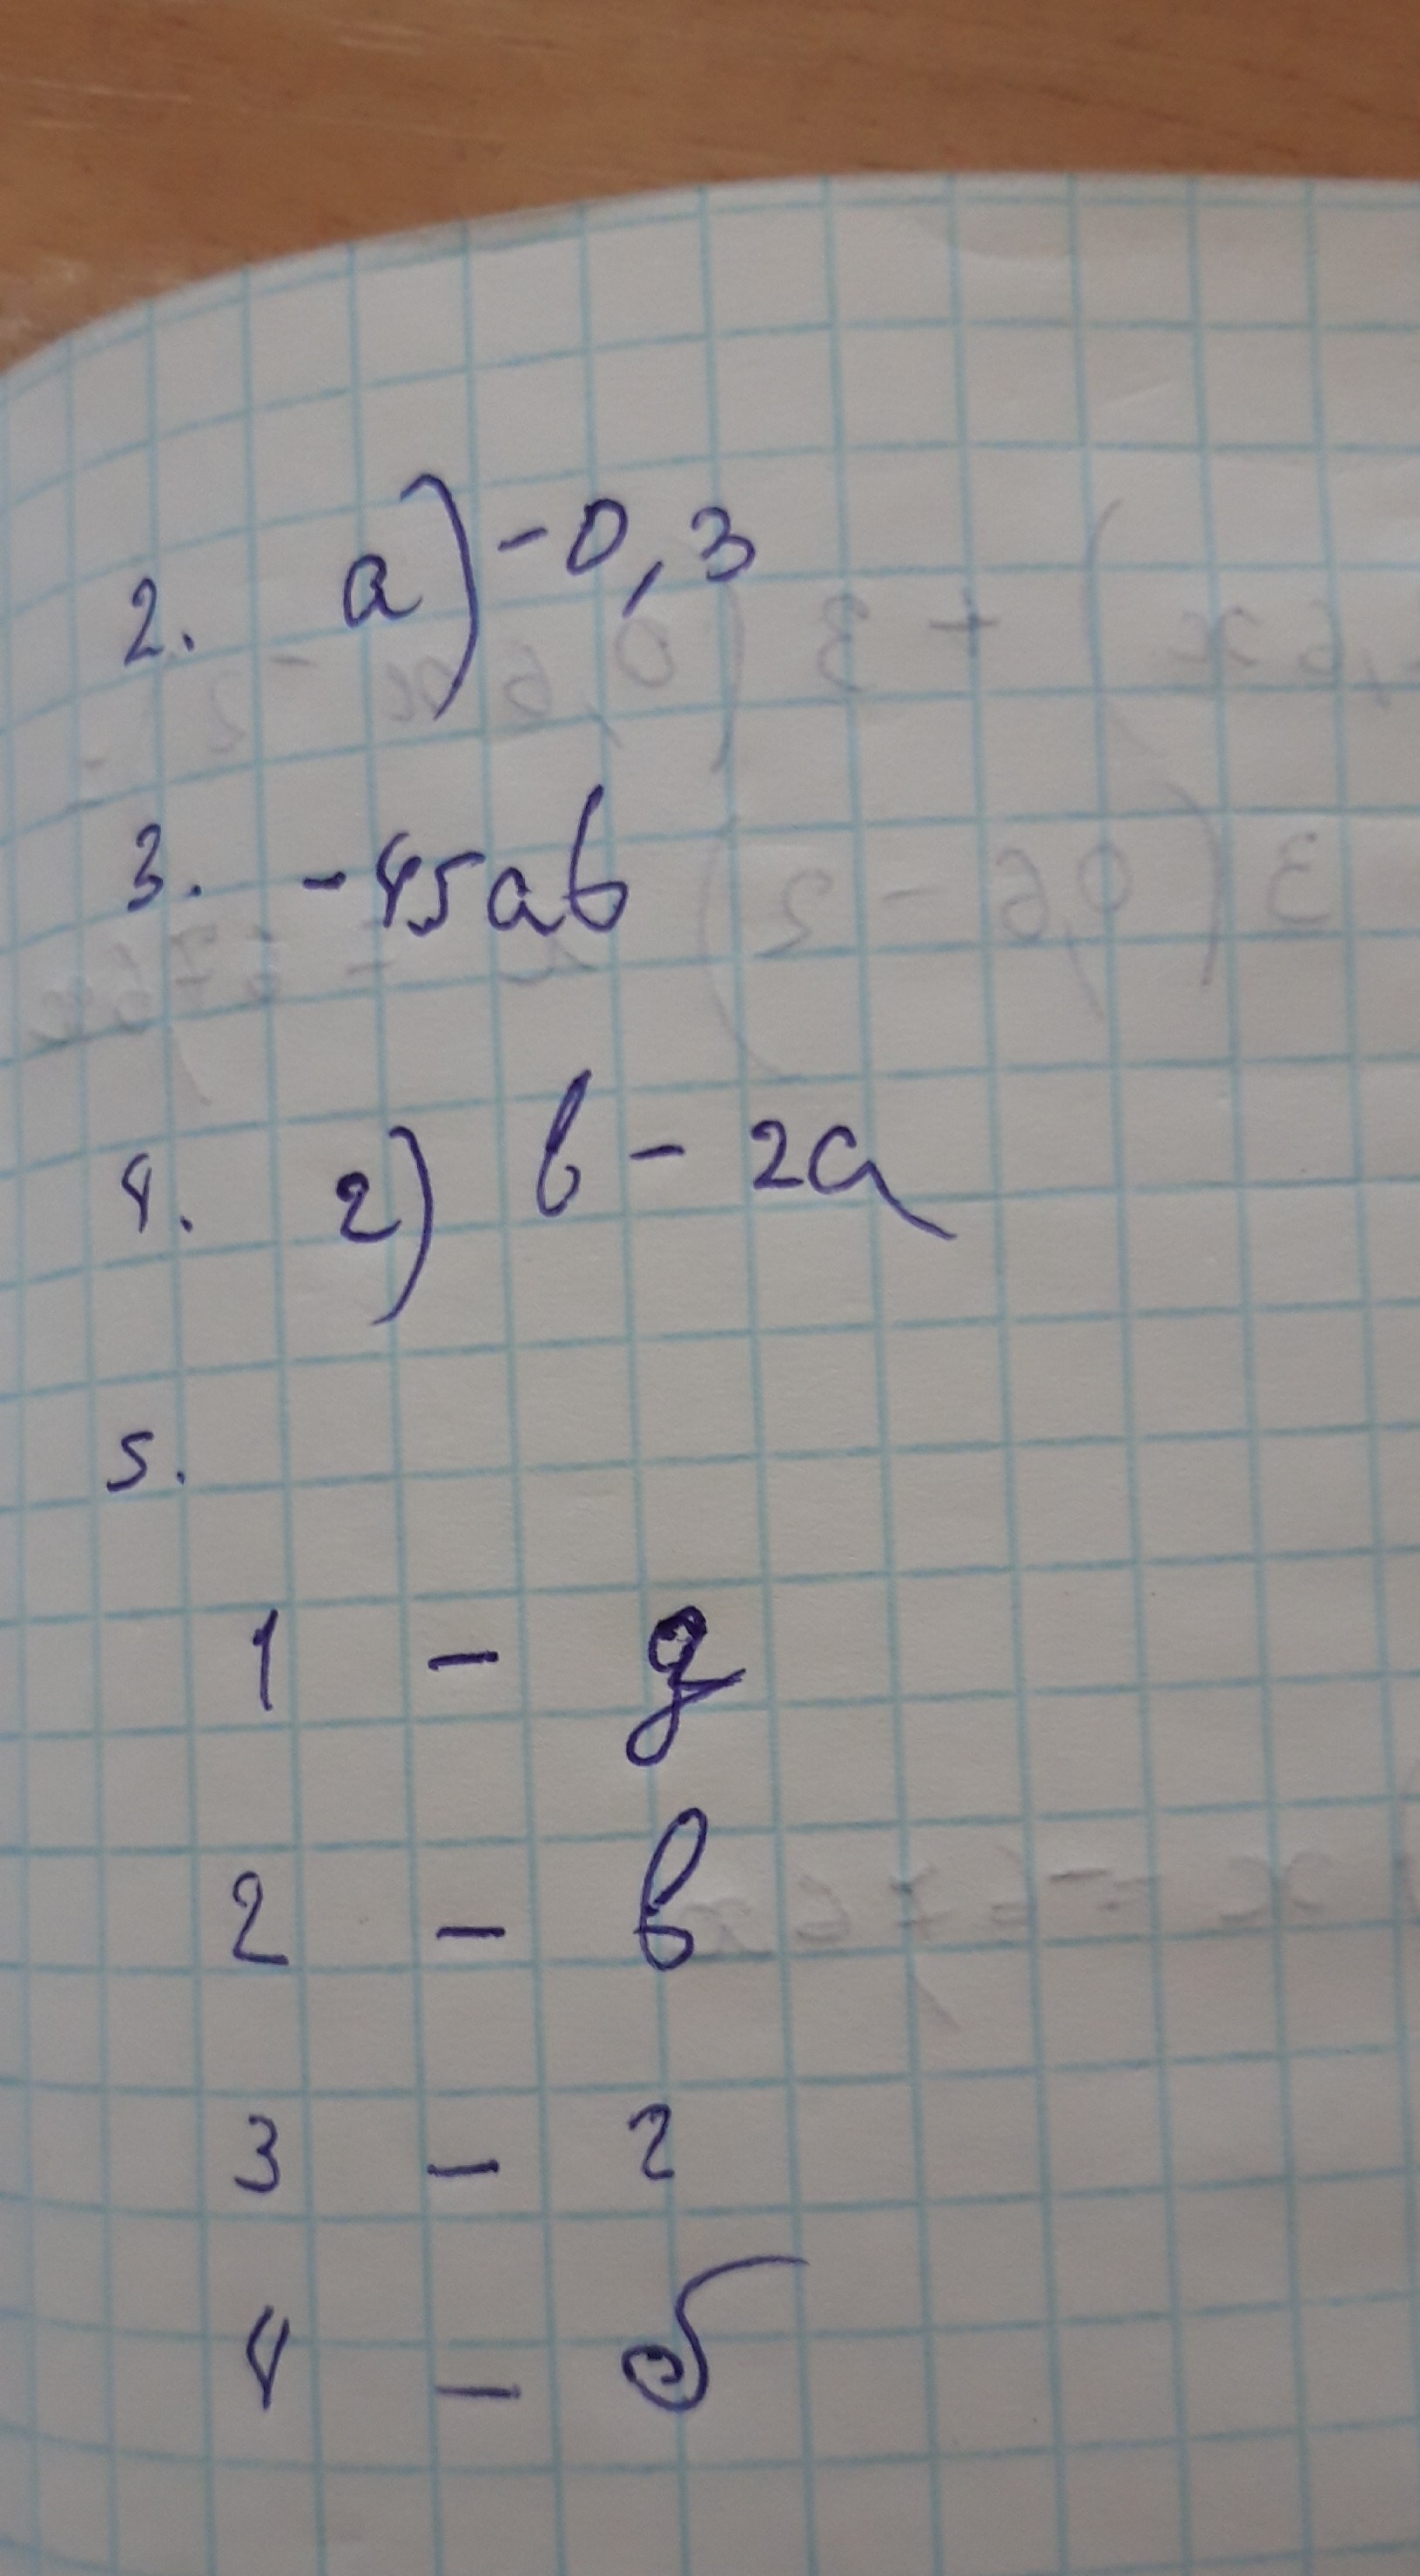 2. а) -0,3
3. -45ab
4. г) b - 2a
5.
1 - д
2 - в
3 - г
4 - б